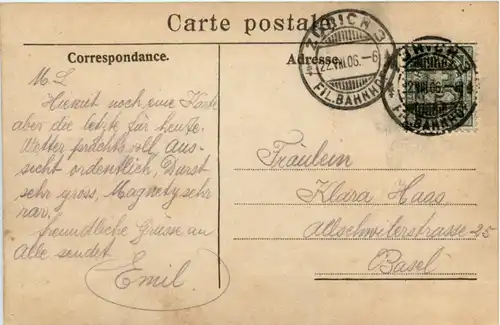 Carte postale
Correspondance.
Adresse.
ZÜRICH 3
22.VIII.06.–6
FIL. BAHNHOF
ZÜRICH 3
22.VIII.06.–6
FIL. BAHNHOF
M. L.
Hiemit noch eine Karte
aber die letzte für heute.
Wetter prachtvoll, Aus-
sicht ordentlich, Durst
sehr gross, sehr
rar.
Freundliche Grüsse an
Alle sendet
Emil.
Fräulein
Klara Haas
Allschwilerstrasse 25
Basel